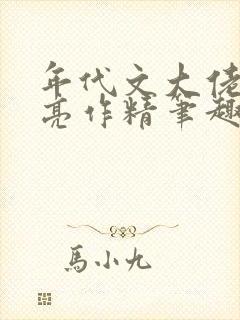 年代文大佬
亮作精笔趣
馬小九